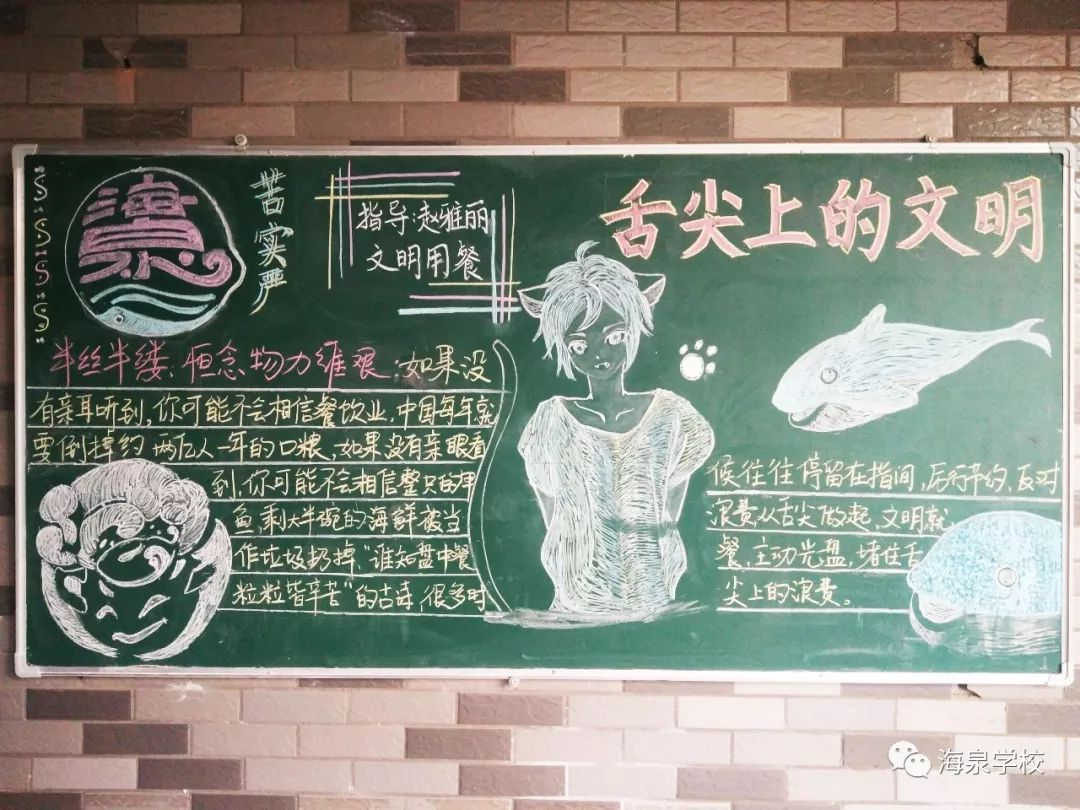 舌尖上的文明
苦实严
指导:赵雅丽
文明用餐
半丝半缕,恒念物力维艰.如果没
有亲耳听到,你可能不会相信餐饮业,中国每年就
要倒掉约两亿人一年的口粮,如果没有亲眼看
到,你可能不会相信整只的甲
鱼,剩大半碗的海鲜被当
作垃圾扔掉,"谁知盘中餐
粒粒皆辛苦"的古诗,很多时
候往往停留在指间,厉行节约,反对
浪费从舌尖做起,文明就
餐,主动光盘,堵住舌
尖上的浪费。
海泉学校